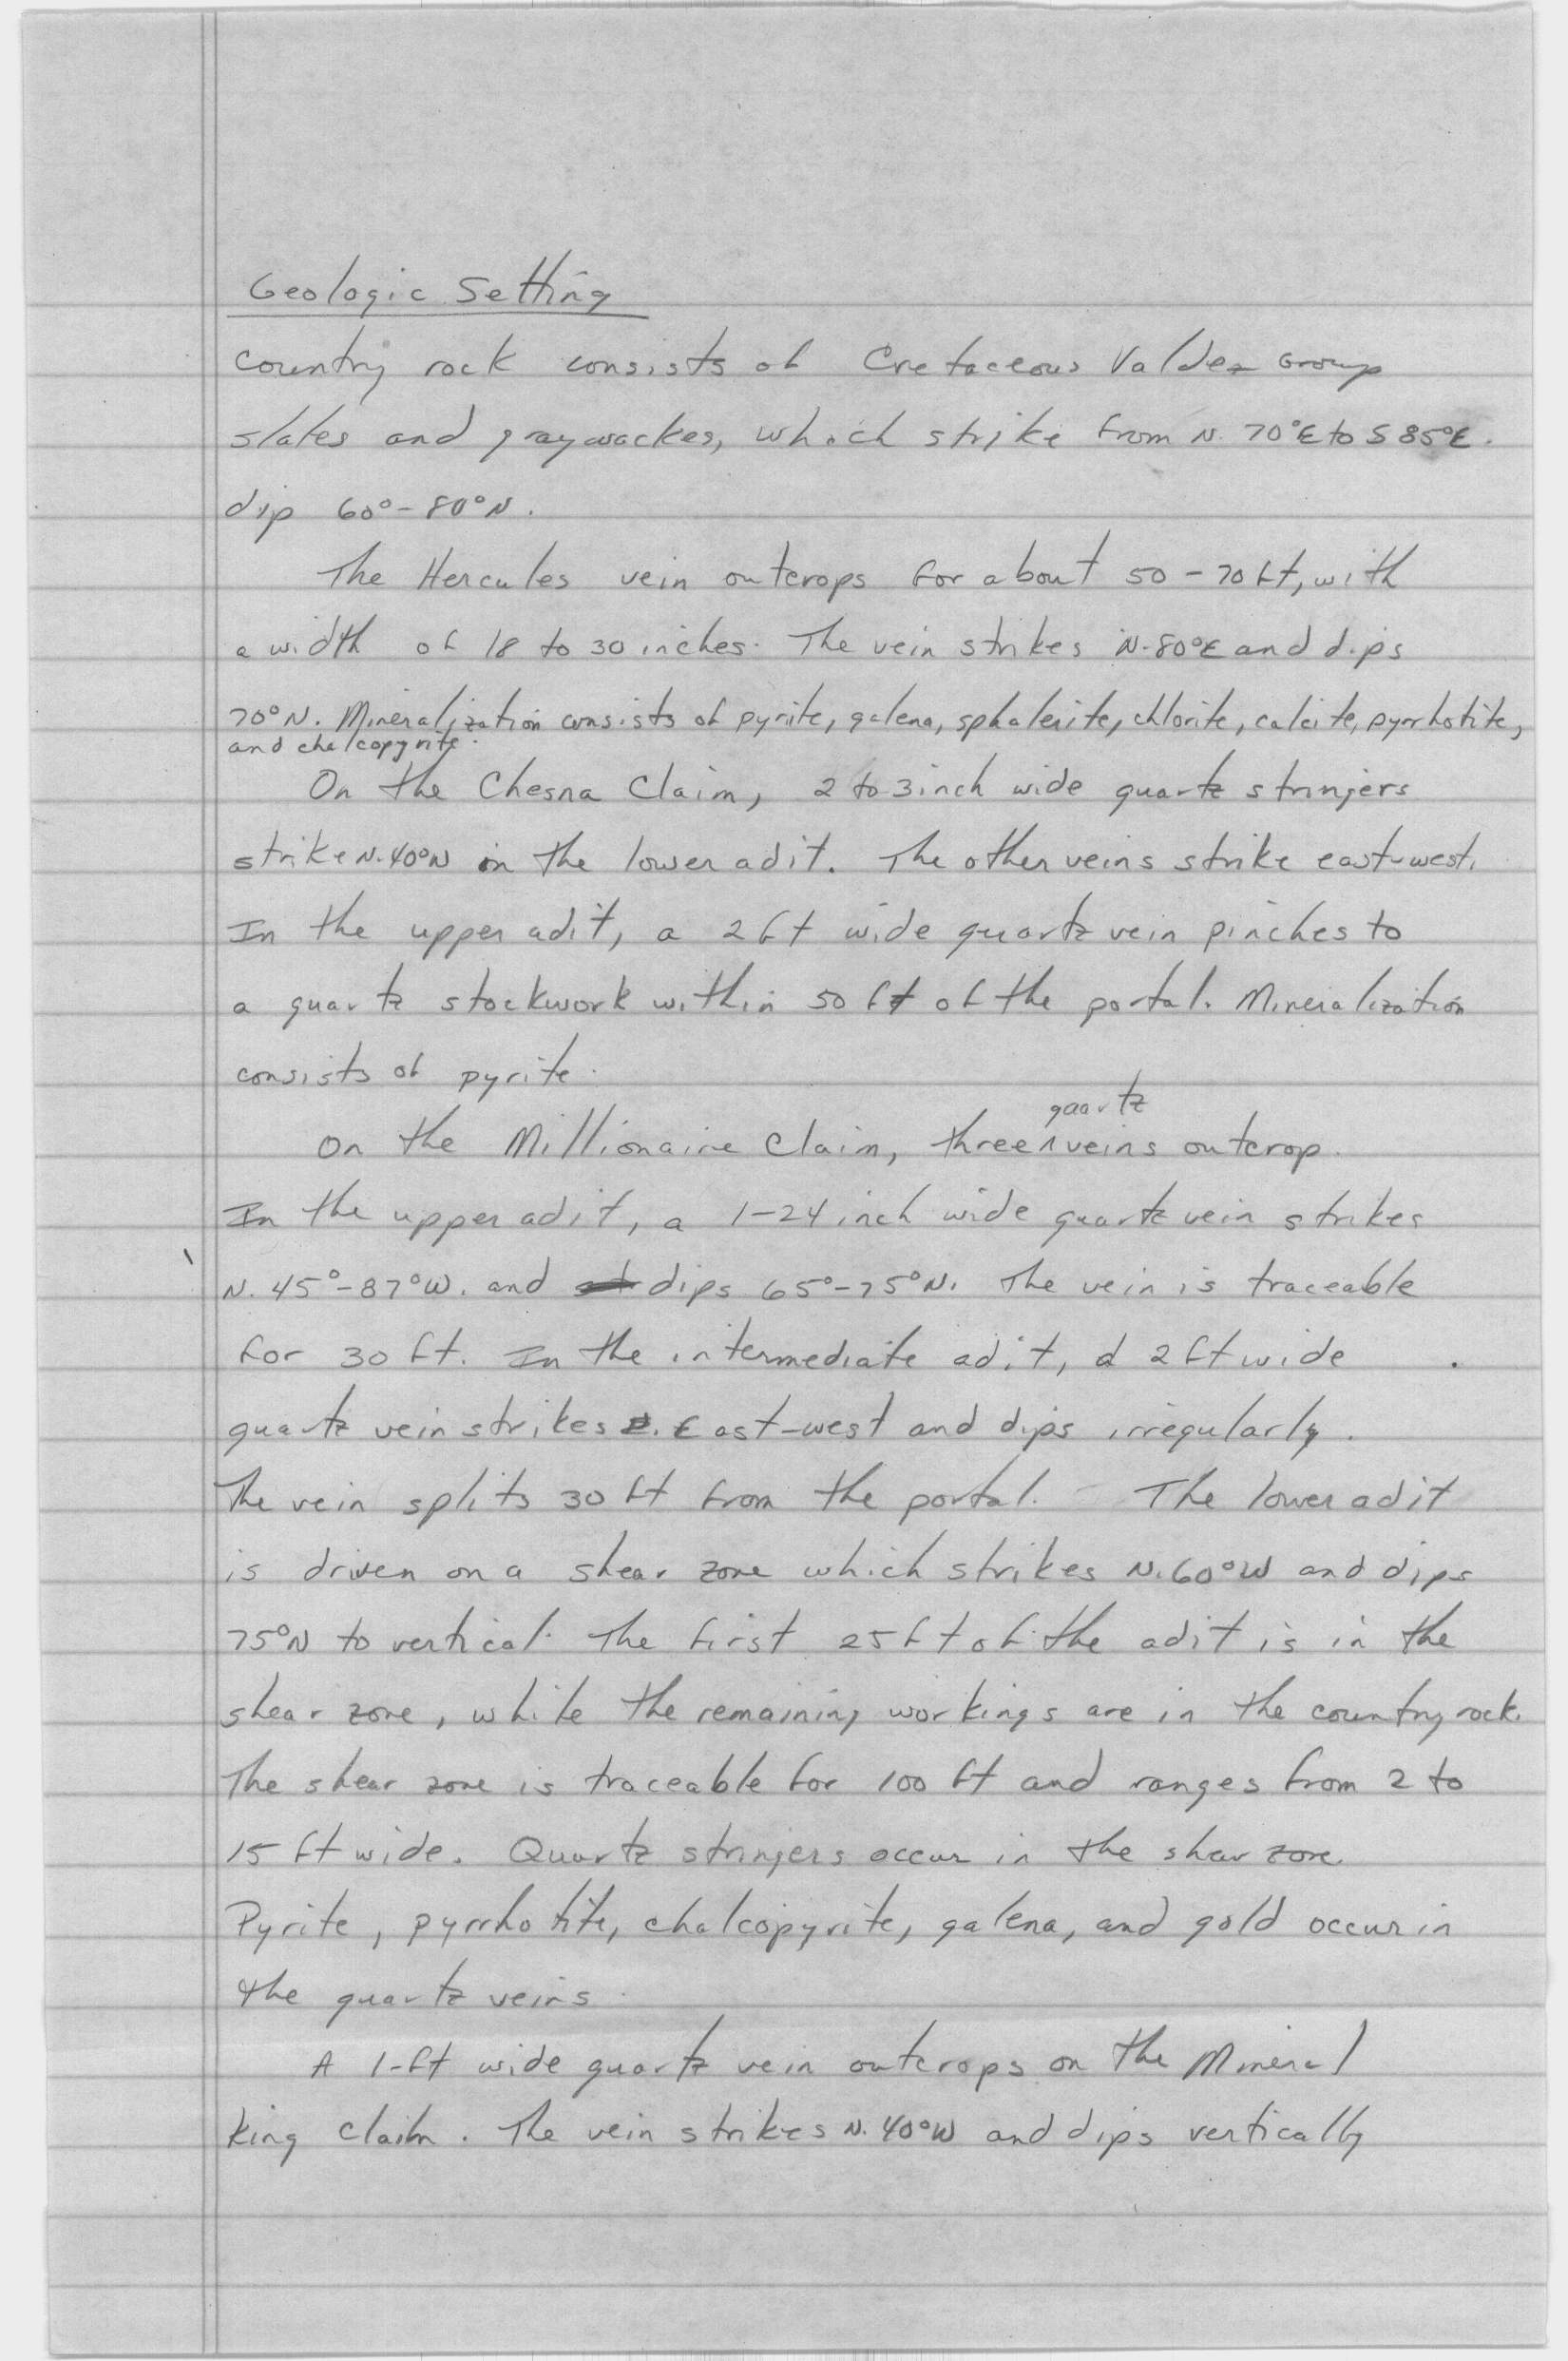 Geologic Setting
Country rock consists of Cretaceous Valdez Group
slates and graywackes, which strike from N. 70°E to S 85°E.
dip 60°-80°N.
The Hercules vein outcrops for about 50-70 ft, with
a width of 18 to 30 inches. The vein strikes N.80°E and dips
70°N. Mineralization consists of pyrite, galena, sphalerite, chlorite, calcite, pyrrhotite,
and chalcopyrite.
On the Chesna Claim, 2 to 3 inch wide quartz stringers
strike N.40°W in the lower adit. The other veins strike east-west.
In the upper adit, a 2 ft wide quartz vein pinches to
a quartz stockwork within 50 ft of the portal. Mineralization
consists of pyrite.
On the Millionaire Claim, three quartz veins outcrop.
In the upper adit, a 1-24 inch wide quartz vein strikes
N. 45°-87°W. and dips 65°-75°N. The vein is traceable
for 30 ft. In the intermediate adit, a 2 ft wide
quartz vein strikes East-west and dips irregularly.
The vein splits 30 ft from the portal. The lower adit
is driven on a shear zone which strikes N.60°W and dips
75°N to vertical. The first 25 ft of the adit is in the
shear zone, while the remaining workings are in the country rock.
The shear zone is traceable for 100 ft and ranges from 2 to
15 ft wide. Quartz stringers occur in the shear zone.
Pyrite, pyrrhotite, chalcopyrite, galena, and gold occur in
the quartz veins.
A 1-ft wide quartz vein outcrops on the Mineral
King claim. The vein strikes N. 40°W and dips vertically